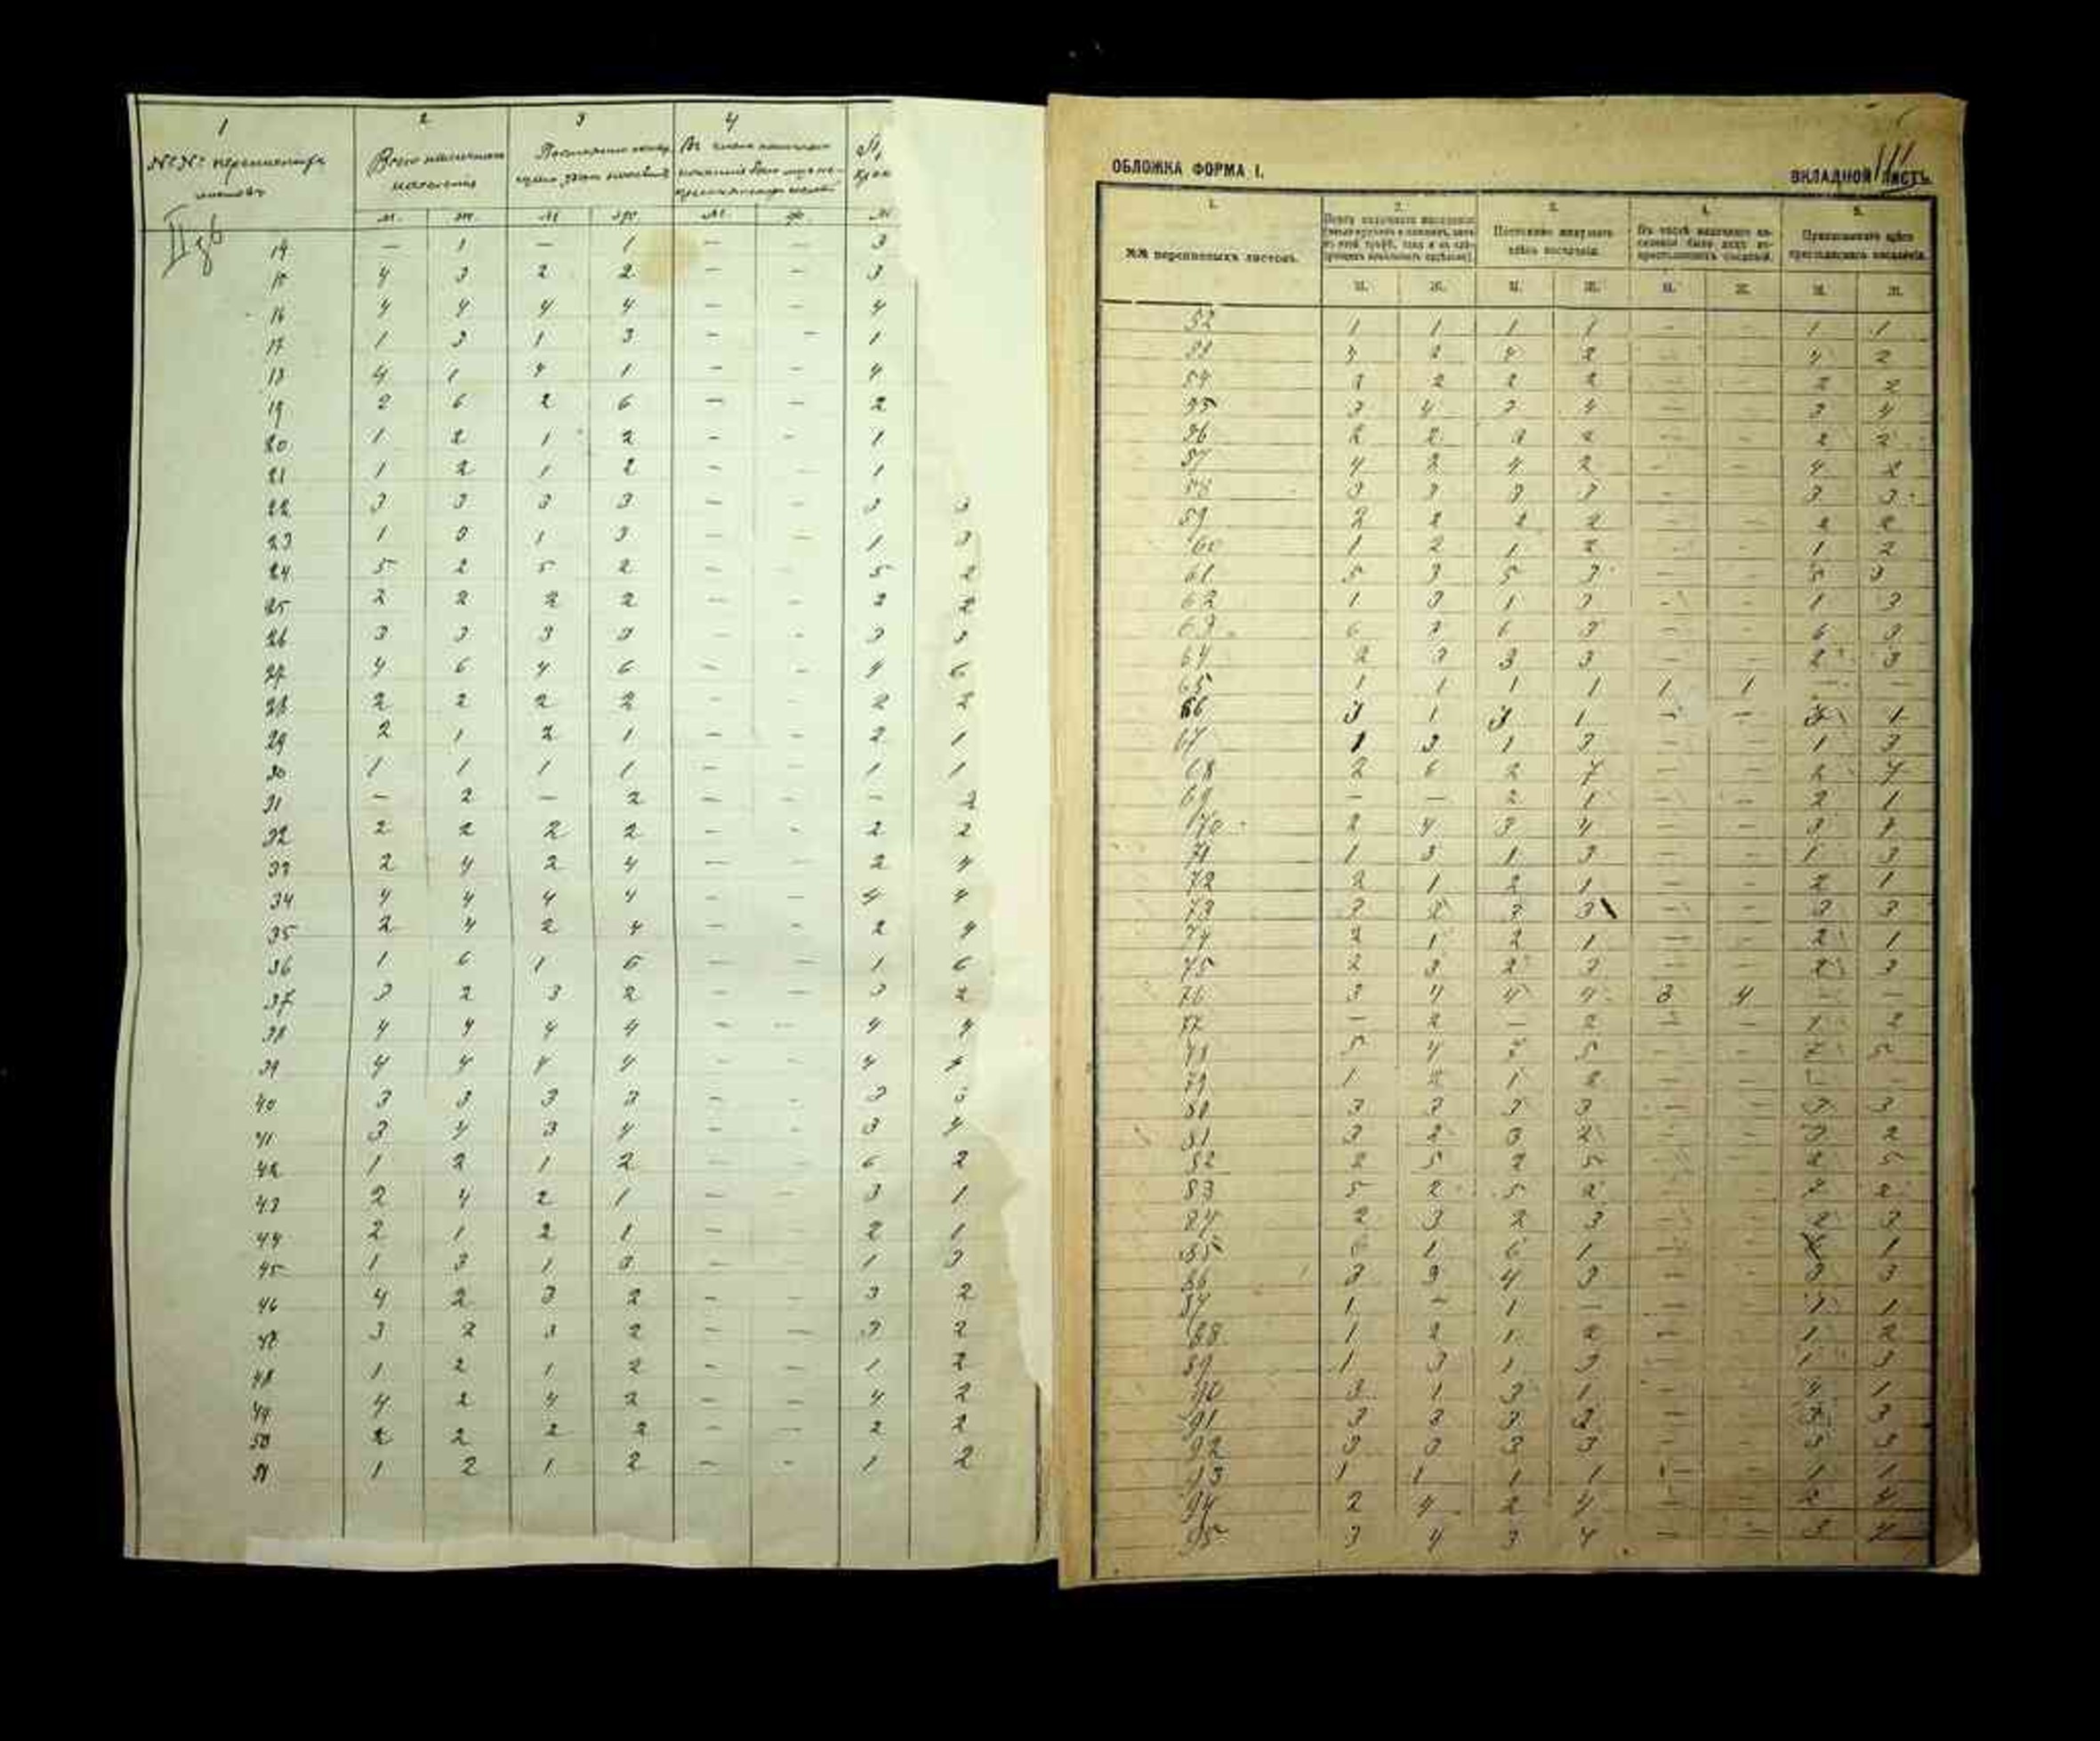 1 2 3 4
№№ переписных Всего наличного Постоянно В числе наличного
листов населения
м. ж. м ж м. ж. м
14 — 1 — 1 — — 3
15 4 3 2 2 — — 3
16 4 4 4 4 — — 4
17 1 3 1 3 — — 1
18 4 1 4 1 — — 4
19 2 6 2 6 — — 2
20 1 2 1 2 — — 1
21 1 2 1 2 — — 1
22 3 3 3 3 — — 3 3
23 1 3 1 3 — — 1 3
24 5 2 5 2 — — 5 2
25 2 2 2 2 — — 2 2
26 3 3 3 3 — — 3 3
27 4 6 4 6 — — 4 6
28 2 2 2 2 — — 2 2
29 2 1 2 1 — — 2 1
30 1 1 1 1 — — 1 1
31 — 2 — 2 — — — 2
32 2 2 2 2 — — 2 2
33 2 4 2 4 — — 2 4
34 4 4 4 4 — — 4 4
35 2 4 2 4 — — 2 4
36 1 6 1 6 — — 1 6
37 3 2 3 2 — — 3 2
38 4 4 4 4 — — 4 4
39 4 4 4 4 — — 4 4
40 3 3 3 3 — — 3 3
41 3 4 3 4 — — 3 4
42 1 2 1 2 — — 6 2
43 2 4 2 1 — — 3 1
44 2 1 2 1 — — 2 1
45 1 3 1 3 — — 1 3
46 4 2 3 2 — — 3 2
47 3 2 3 2 — — 3 2
48 1 2 1 2 — — 1 2
49 4 2 4 2 — — 4 2
50 2 2 2 2 — — 2 2
51 1 2 1 2 — — 1 2
ОБЛОЖКА ФОРМА I. ВКЛАДНОЙ ЛИСТЪ
1. 2. 3. 4. 5.
№№ переписныхъ листовъ. Всего наличнаго населенія Постоянно живущаго здѣсь населенія. Въ числѣ наличнаго населенія было лицъ некрестьянскихъ сословій. Приписаннаго здѣсь крестьянскаго населенія.
М. Ж. М. Ж. М. Ж. М. Ж.
52 1 1 1 1 — — 1 1
53 4 2 4 2 — — 4 2
54 2 2 2 2 — — 2 2
55 3 4 3 4 — — 3 4
56 2 2 2 2 — — 2 2
57 4 2 4 2 — — 4 2
58 3 3 3 3 — — 3 3
59 2 2 2 2 — — 2 2
60 1 2 1 2 — — 1 2
61 5 3 5 3 — — 5 3
62 1 3 1 3 — — 1 3
63 6 3 6 3 — — 6 3
64 2 3 3 3 — — 2 3
65 1 1 1 1 1 1 — —
66 3 1 3 1 — — 3 1
67 1 3 1 3 — — 1 3
68 2 6 2 7 — — 2 7
69 — — 2 1 — — 2 1
70 2 4 3 4 — — 3 4
71 1 3 1 3 — — 1 3
72 2 1 2 1 — — 2 1
73 3 2 3 3 — — 3 3
74 2 1 2 1 — — 2 1
75 2 3 2 3 — — 2 3
76 3 4 4 4 3 4 — —
77 — 2 — 2 — — 1 2
78 5 4 5 — — 5
79 1 2 1 2 — — — —
80 3 3 3 3 — — 3 3
81 3 2 3 2 — — 3 2
82 2 5 2 5 — — 2 5
83 5 2 5 2 — — 2
84 2 3 2 3 — — 2 3
85 6 1 6 1 — — 1
86 3 3 4 3 — — 3 3
87 1 — 1 — — — 1 1
88 1 2 1 2 — — 1 2
89 1 3 1 3 — — 1 3
90 3 1 3 1 — — 4 1
91 3 3 3 3 — — 3 3
92 3 3 3 3 — — 3 3
93 1 1 1 1 — — 1 1
94 2 4 2 4 — — 2 4
95 3 4 3 4 — — 3 4